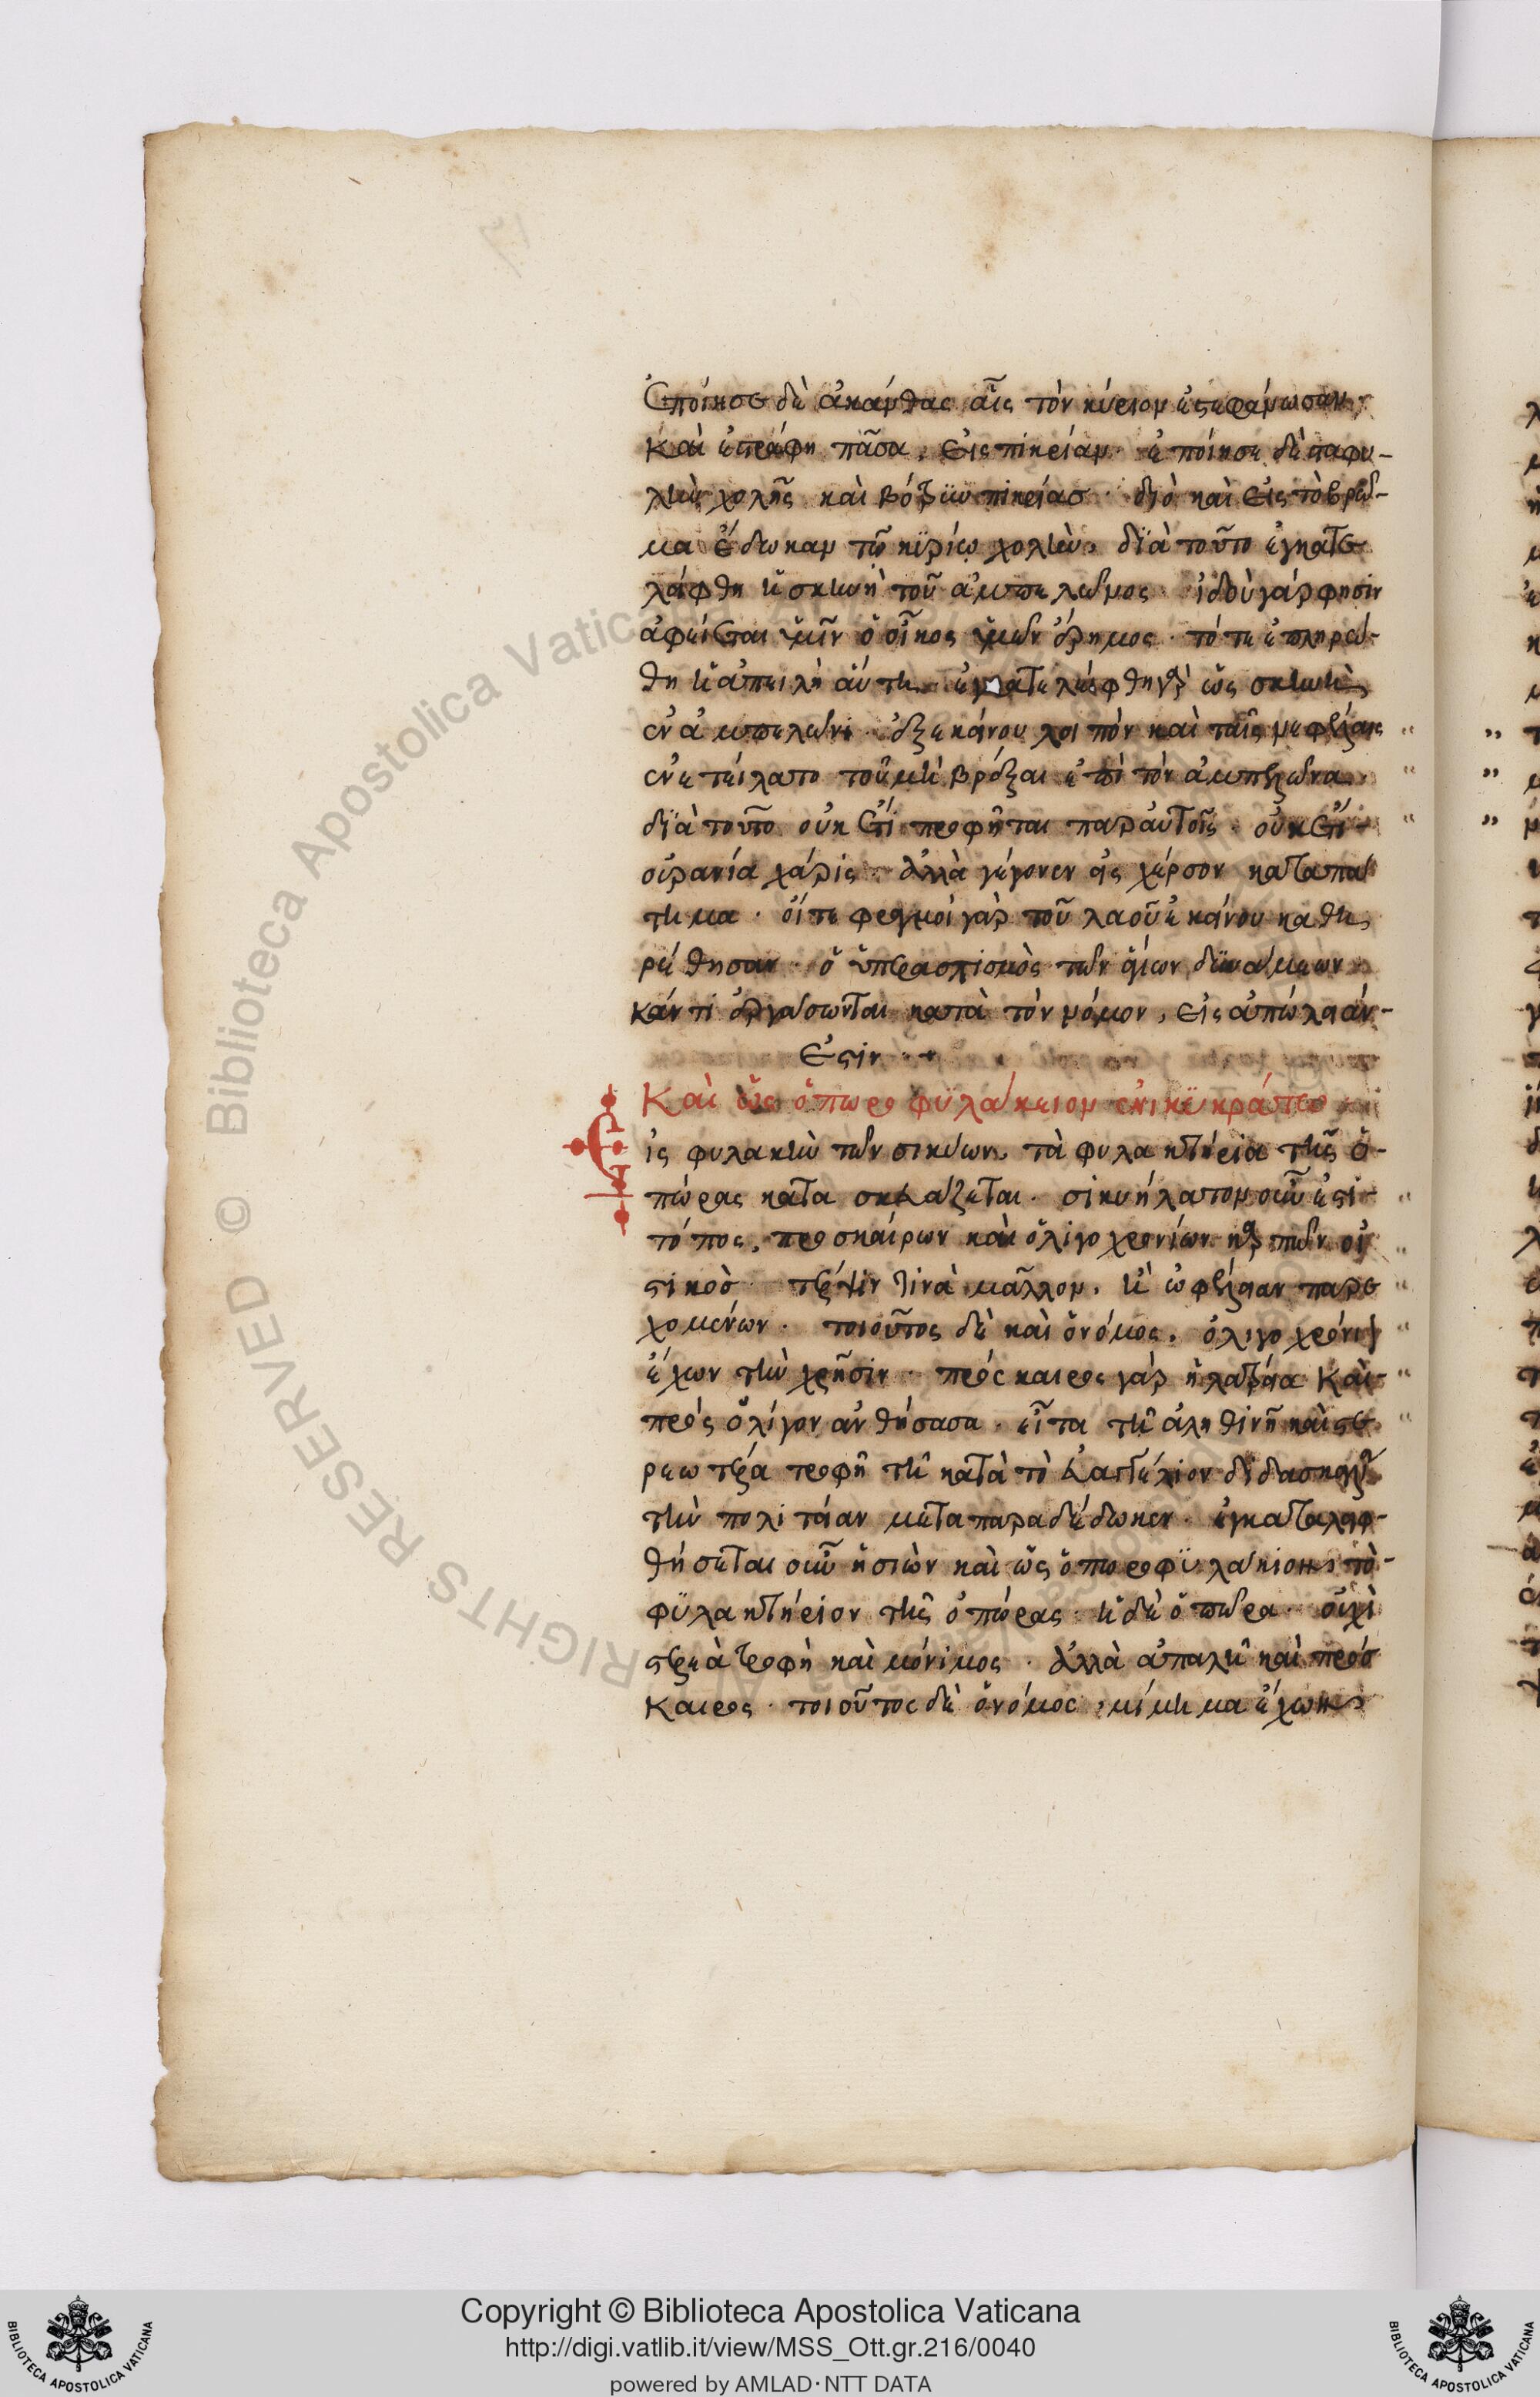 Ἐποίησε δὲ ἀκάνθας αἷς τὸν κύριον ἐστεφάνωσαν.
Καὶ ἐστράφη πᾶσα, εἰς πικρίαν. ἐποίησε δὲ σταφυ-
λὴν χολῆς καὶ βότρυν πικρίας. διὸ καὶ εἰς τὸ βρῶ-
μα ἔδωκαν τῷ κυρίῳ χολὴν, διὰ τοῦτο ἐγκατε
λείφθη ἡ σκηνὴ τοῦ ἀμπελῶνος. ἰδοὺ γάρ φησιν
ἀφίεται ὑμῖν ὁ οἶκος ὑμῶν ἔρημος. τότε ἐπληρώ-
θη ἡ ἀπειλὴ αὕτη. ἐγκατελείφθη γὰρ ὡς σκηνὴ,
ἐν ἀμπελῶνι. ἐξ ἐκείνου λοιπὸν καὶ ταῖς νεφέλαις
ἐνετείλατο τοῦ μὴ βρέξαι ἐπὶ τὸν ἀμπελῶνα.
διὰ τοῦτο οὐκ ἔτι προφῆται παρ' αὐτοῖς. οὐκ ἔτι
οὐρανία χάρις. ἀλλὰ γέγονεν εἰς χέρσον καταπά
τημα. οἵτε φραγμοὶ γὰρ τοῦ λαοῦ ἐκείνου καθῃ
ρέθησαν. ὁ ὑπερασπισμὸς τῶν ἁγίων δυνάμεων
κἄν τι ἐργάσωνται κατὰ τὸν νόμον, εἰς ἀπώλειάν-
ἐστιν. +
Καὶ ὡς ὀπωροφυλάκιον ἐν σικυηράτῳ
Εἰς φυλακὴν τῶν σικύων, τὰ φυλακτήρια τῆς ὀ-
πώρας κατασκευάζεται. σικυήλατον οὖν ἐστι
τόπος, προσκαίρων καὶ ὀλιγοχρονίων καρπῶν οἰ
στικὸς τέρψιν τινὰ μᾶλλον, ἢ ὠφέλειαν παρε
χομένων. τοιοῦτος δὲ καὶ ὁ νόμος. ὀλιγοχρόνιον
ἔχων τὴν χρῆσιν. πρόσκαιρος γὰρ ἡ λατρεία καὶ
πρὸς ὀλίγον ἀνθήσασα. εἶτα τῇ ἀληθινῇ καὶ στε
ρεωτέρα τροφῇ τῇ κατὰ τὸ εὐαγγέλιον διδασκαλίᾳ
τὴν πολιτείαν μεταπαραδέδωκεν. ἐγκαταλειφ-
θήσεται οὖν ἡ σιὼν καὶ ὡς ὀπωροφυλάκιον, τὸ-
φυλακτήριον τῆς ὀπώρας. ἡ δὲ ὀπώρα οὐχὶ
στερεὰ τροφὴ καὶ μόνιμος. ἀλλὰ ἁπαλὴ καὶ πρόσ
καιρος. τοιοῦτος δὲ ὁ νόμος, μίμημα ἔχων
Copyright © Biblioteca Apostolica Vaticana
http://digi.vatlib.it/view/MSS_Ott.gr.216/0040
powered by AMLAD·NTT DATA